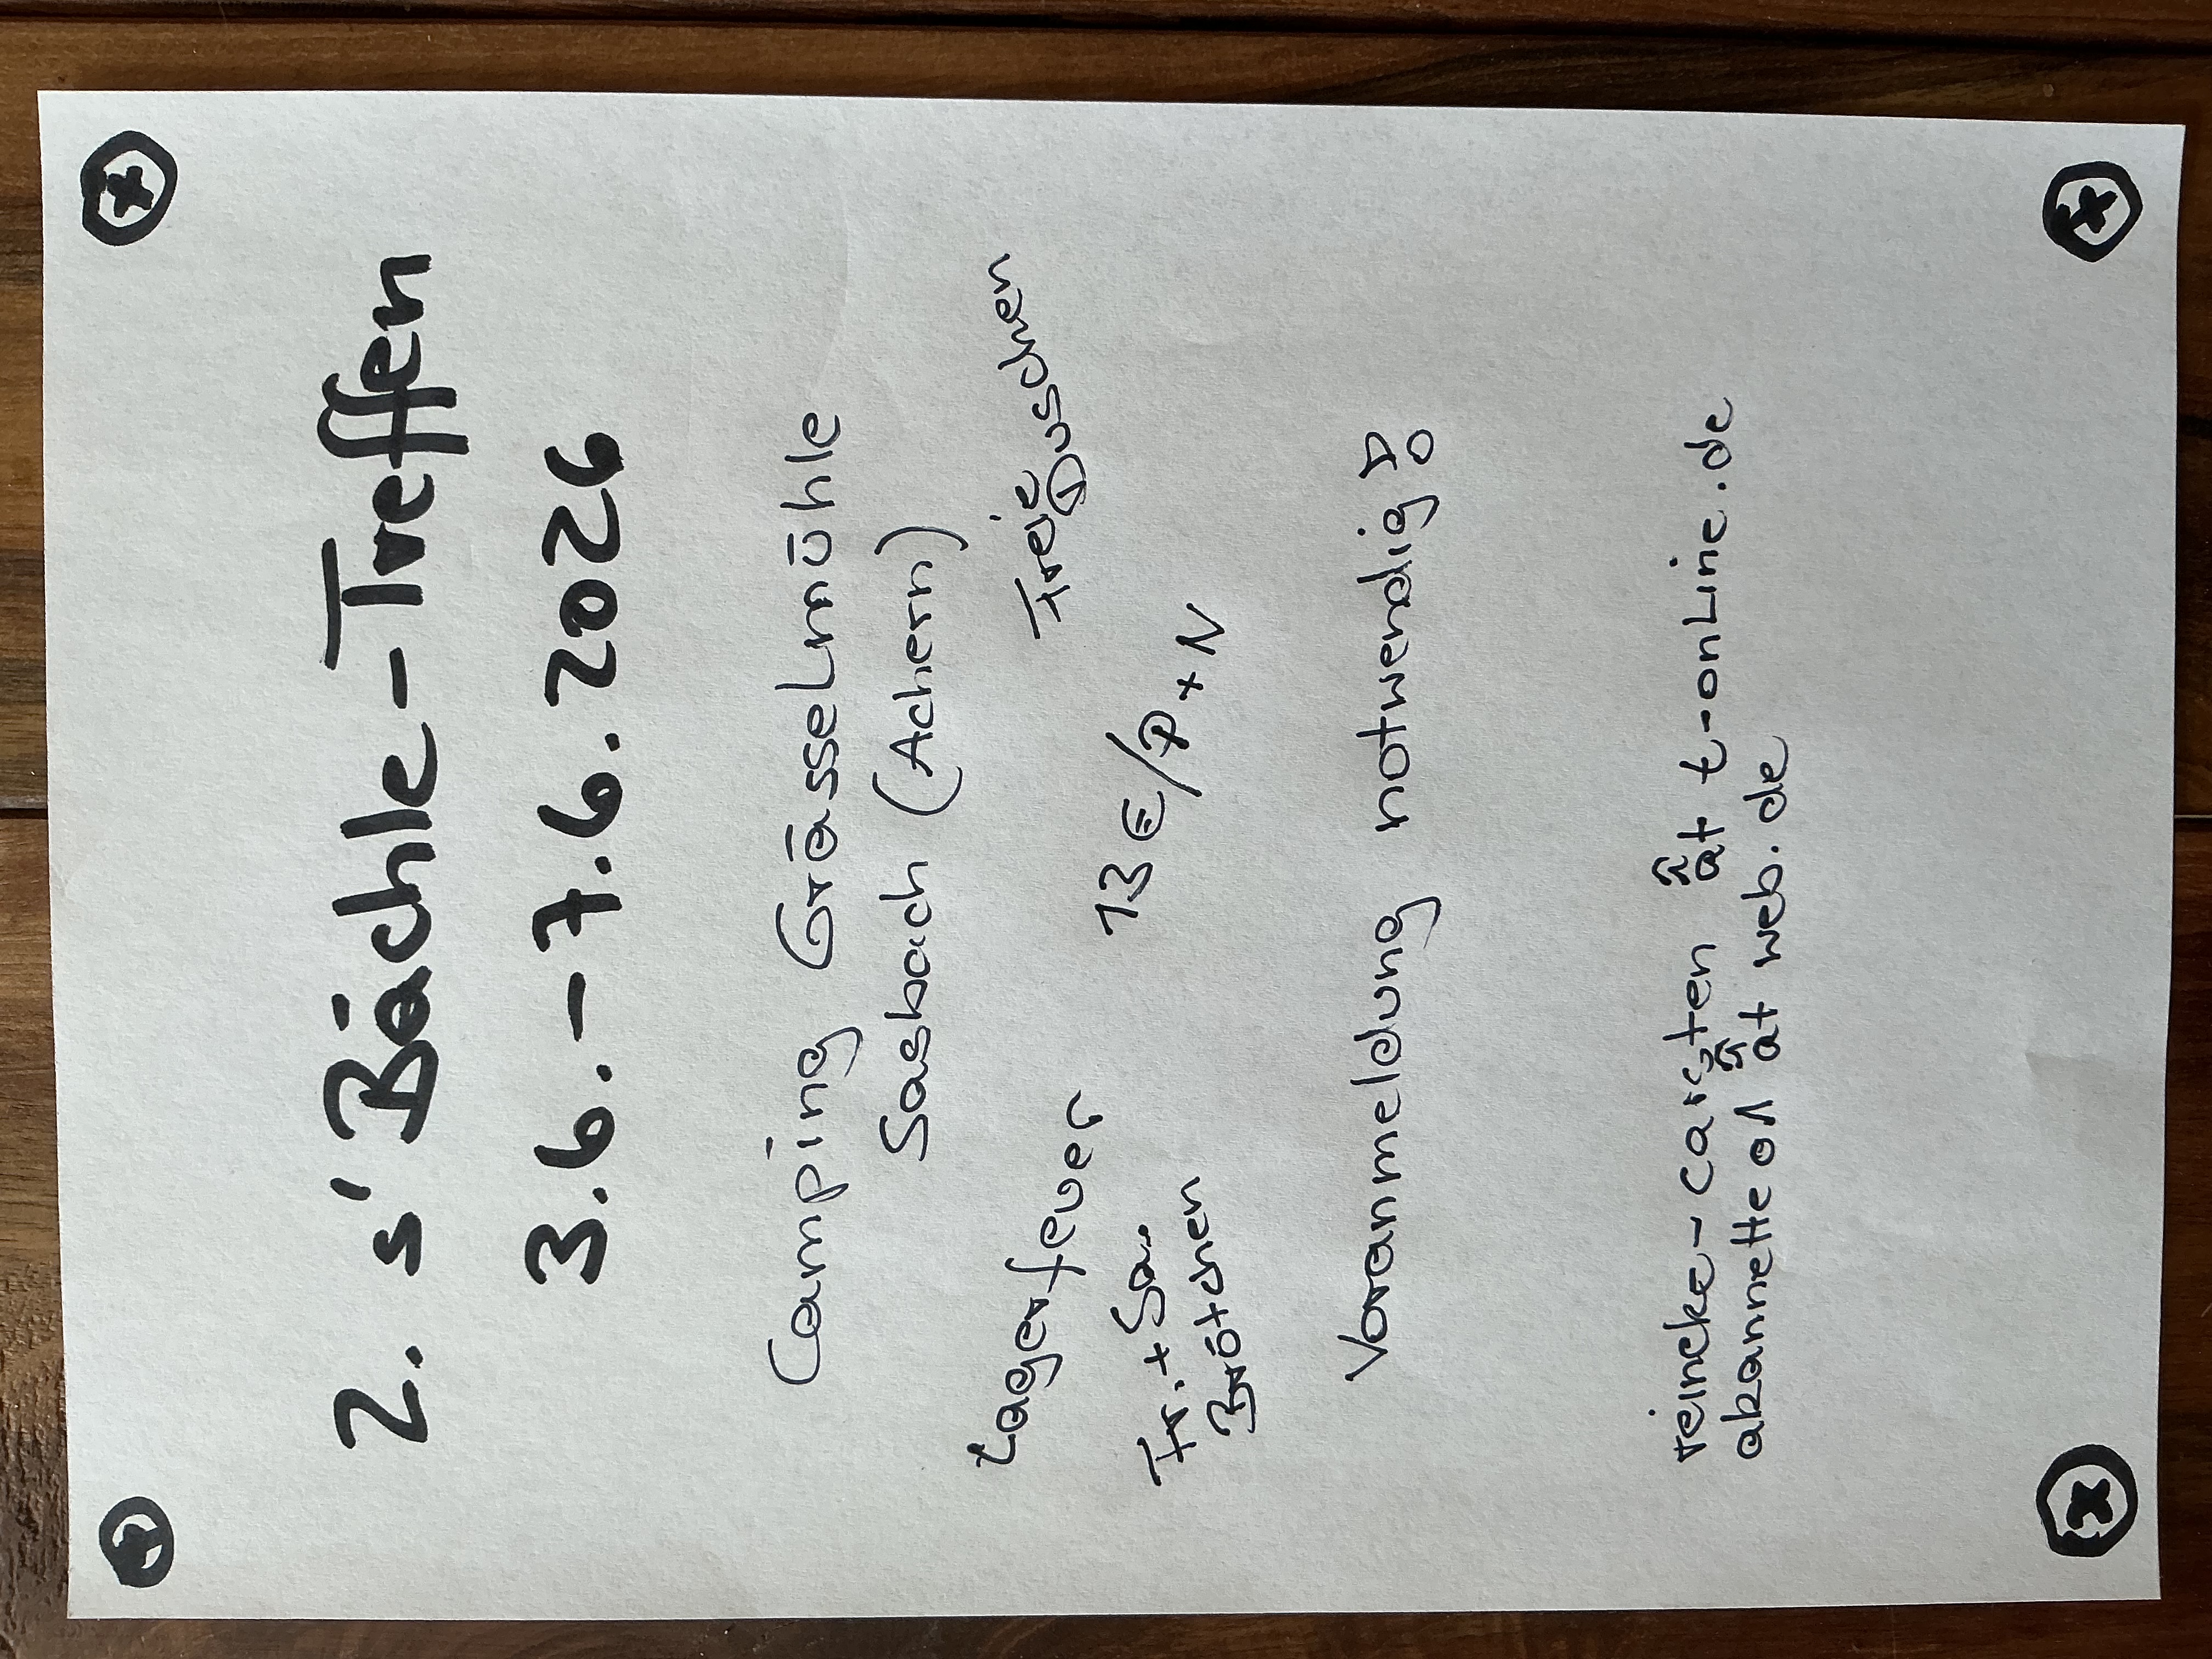 2. s' Bächle-Treffen
3.6.-7.6.2026
Camping Grässelmühle
Sasbach (Achern)
Lagerfeuer
Freie Duschen
13 €/P+N
Fr.+Sa.
Brötchen
Voranmeldung notwendig!
reineke-carsten ät t-online.de
akannette01 ät web.de